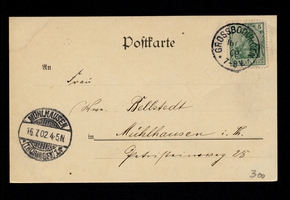 Postkarte
GROSSBODUNGEN
7-8V.
5
An
Frau
Wwe. Bellstedt
in Mühlhausen i. Th.
Petristeinweg 25
MÜHLHAUSEN
16.7.02.4-5N
(THÜRINGEN)
300